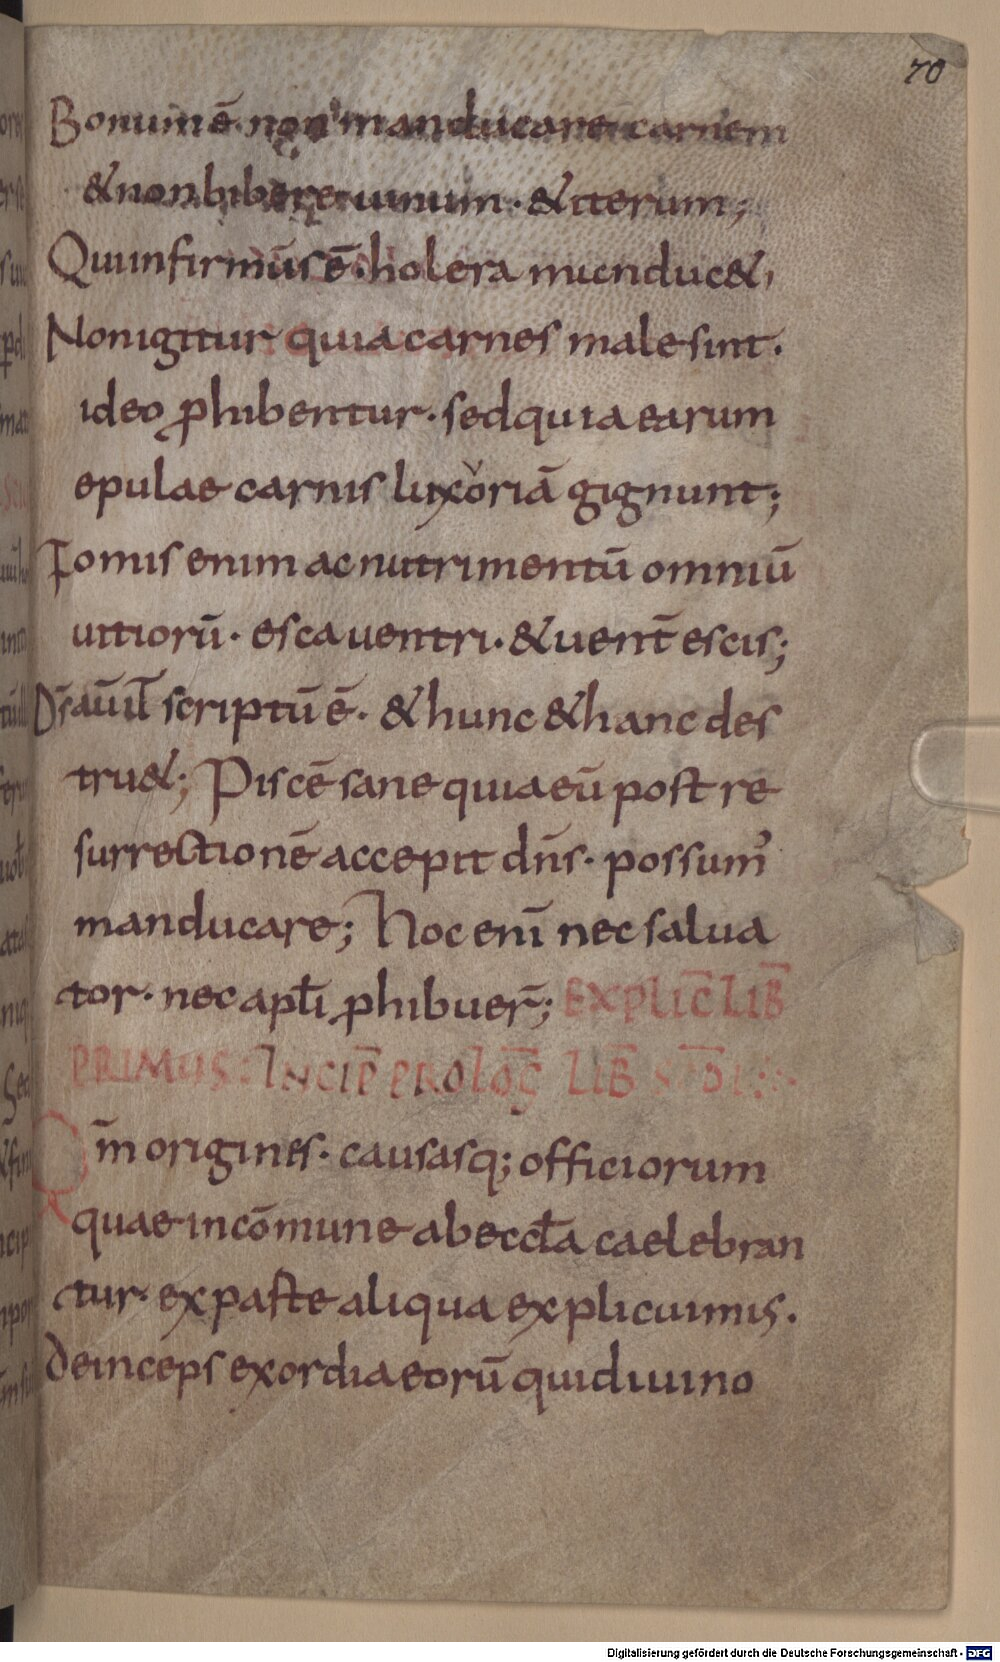 70
Bonum ē non manducare carnem
& non bibere uinum · & iterum;
Qui infirmus ē · holera manduc&;
Non igitur quia carnes male sint ·
ideo ꝓhibentur · sed quia earum
epulae carnis luxoriā gignunt;
Fomis enim ac nutrimentū omniū
uitiorū · esca uentri · & uent̄ escis;
D̄s aūt̄ scriptū ē · & hunc & hanc des
tru&; Piscē sane quia eū post re
surrectionē accepit dn̄s · possum᾿
manducare; Hoc eni̅ nec salua
tor · nec apl̄i ꝓhibuer̄; EXPLIC̄ LIB̄
PRIMUS: INCIP̄ PROLOḠ LIB̄
Qm̄ origines · causasq; officiorum
quae in cōmune ab eccl̄a caelebran
tur · ex parte aliqua explicuimus ·
Deinceps exordia eorū qui diuino
Digitalisierung gefördert durch die Deutsche Forschungsgemeinschaft - DFG